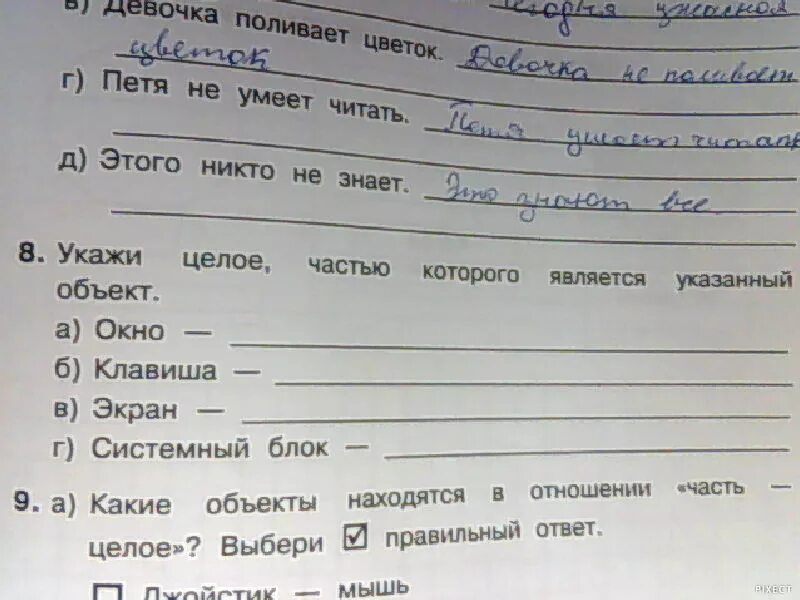 в) Девочка поливает цветок. Девочка не поливает
цветок
г) Петя не умеет читать. Петя умеет читать
д) Этого никто не знает. Это знают все
8. Укажи целое, частью которого является указанный
объект.
а) Окно —
б) Клавиша —
в) Экран —
г) Системный блок —
9. а) Какие объекты находятся в отношении «часть —
целое»? Выбери ☑ правильный ответ.
☐ Джойстик — мышь
PIXECT